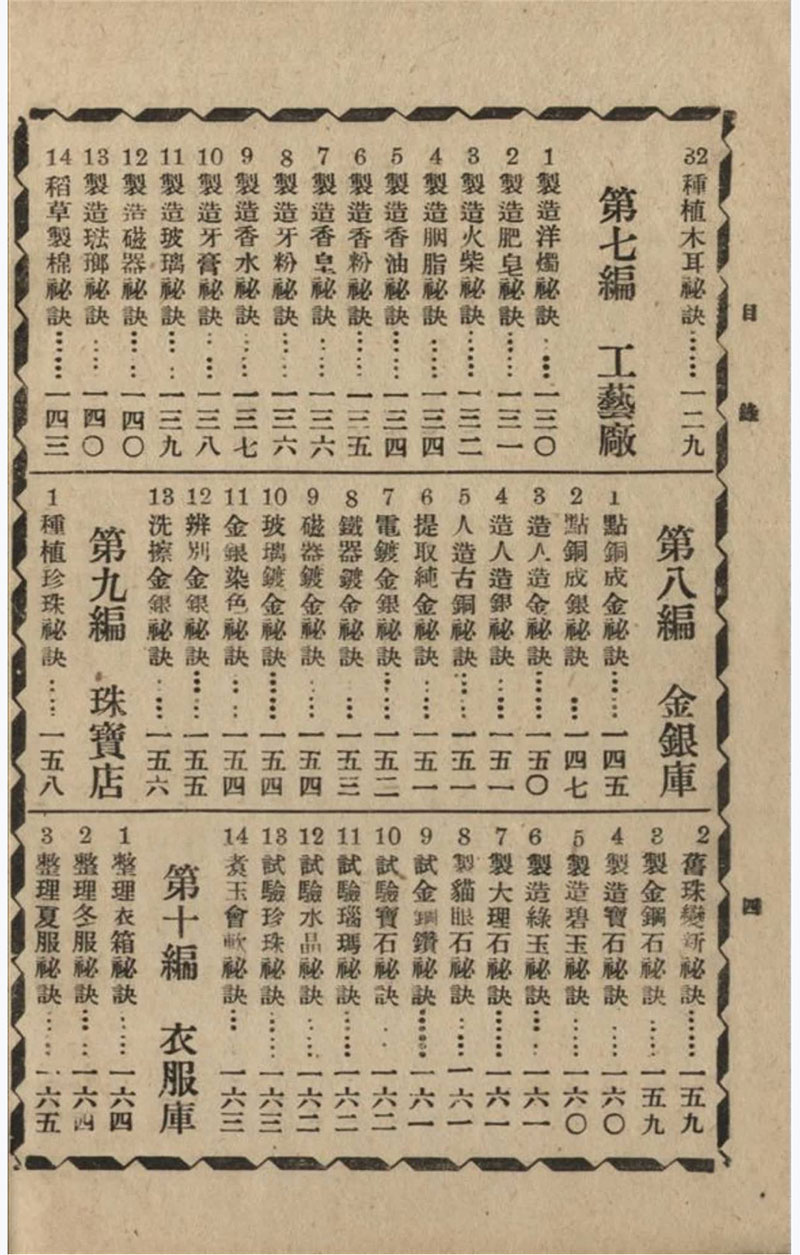 目錄
四
32種植木耳祕訣……一二九
第七編 工藝廠
1製造洋燭祕訣……一三〇
2製造肥皂祕訣……一三一
3製造火柴祕訣……一三二
4製造胭脂祕訣……一三四
5製造香油祕訣……一三四
6製造香粉祕訣……一三五
7製造香皇祕訣……一三六
8製造牙粉祕訣……一三六
9製造香水祕訣……一三七
10製造牙膏祕訣……一三八
11製造玻璃祕訣……一三九
12製造磁器祕訣……一四〇
13製造琺瑯祕訣……一四〇
14稻草製棉祕訣……一四三
第八編 金銀庫
1點銅成金祕訣……一四五
2點銅成銀祕訣……一四七
3造人造金祕訣……一五〇
4造人造銀祕訣……一五一
5人造古銅祕訣……一五一
6提取純金祕訣……一五一
7電鍍金銀祕訣……一五二
8鐵器鍍金祕訣……一五三
9磁器鍍金祕訣……一五四
10玻璃鍍金祕訣……一五四
11金銀染色祕訣……一五四
12辨別金銀祕訣……一五五
13洗擦金銀祕訣……一五六
第九編 珠寶店
1種植珍珠祕訣……一五八
2舊珠變新祕訣……一五九
3製金鋼石祕訣……一五九
4製造寶石祕訣……一六〇
5製造碧玉祕訣……一六〇
6製造綠玉祕訣……一六一
7製大理石祕訣……一六一
8製貓眼石祕訣……一六一
9試金鋼鑽祕訣……一六一
10試驗寶石祕訣……一六二
11試驗瑙瑪祕訣……一六二
12試驗水晶祕訣……一六二
13試驗珍珠祕訣……一六三
14煮玉會軟祕訣……一六三
第十編 衣服庫
1整理衣箱祕訣……一六四
2整理冬服祕訣……一六四
3整理夏服祕訣……一六五